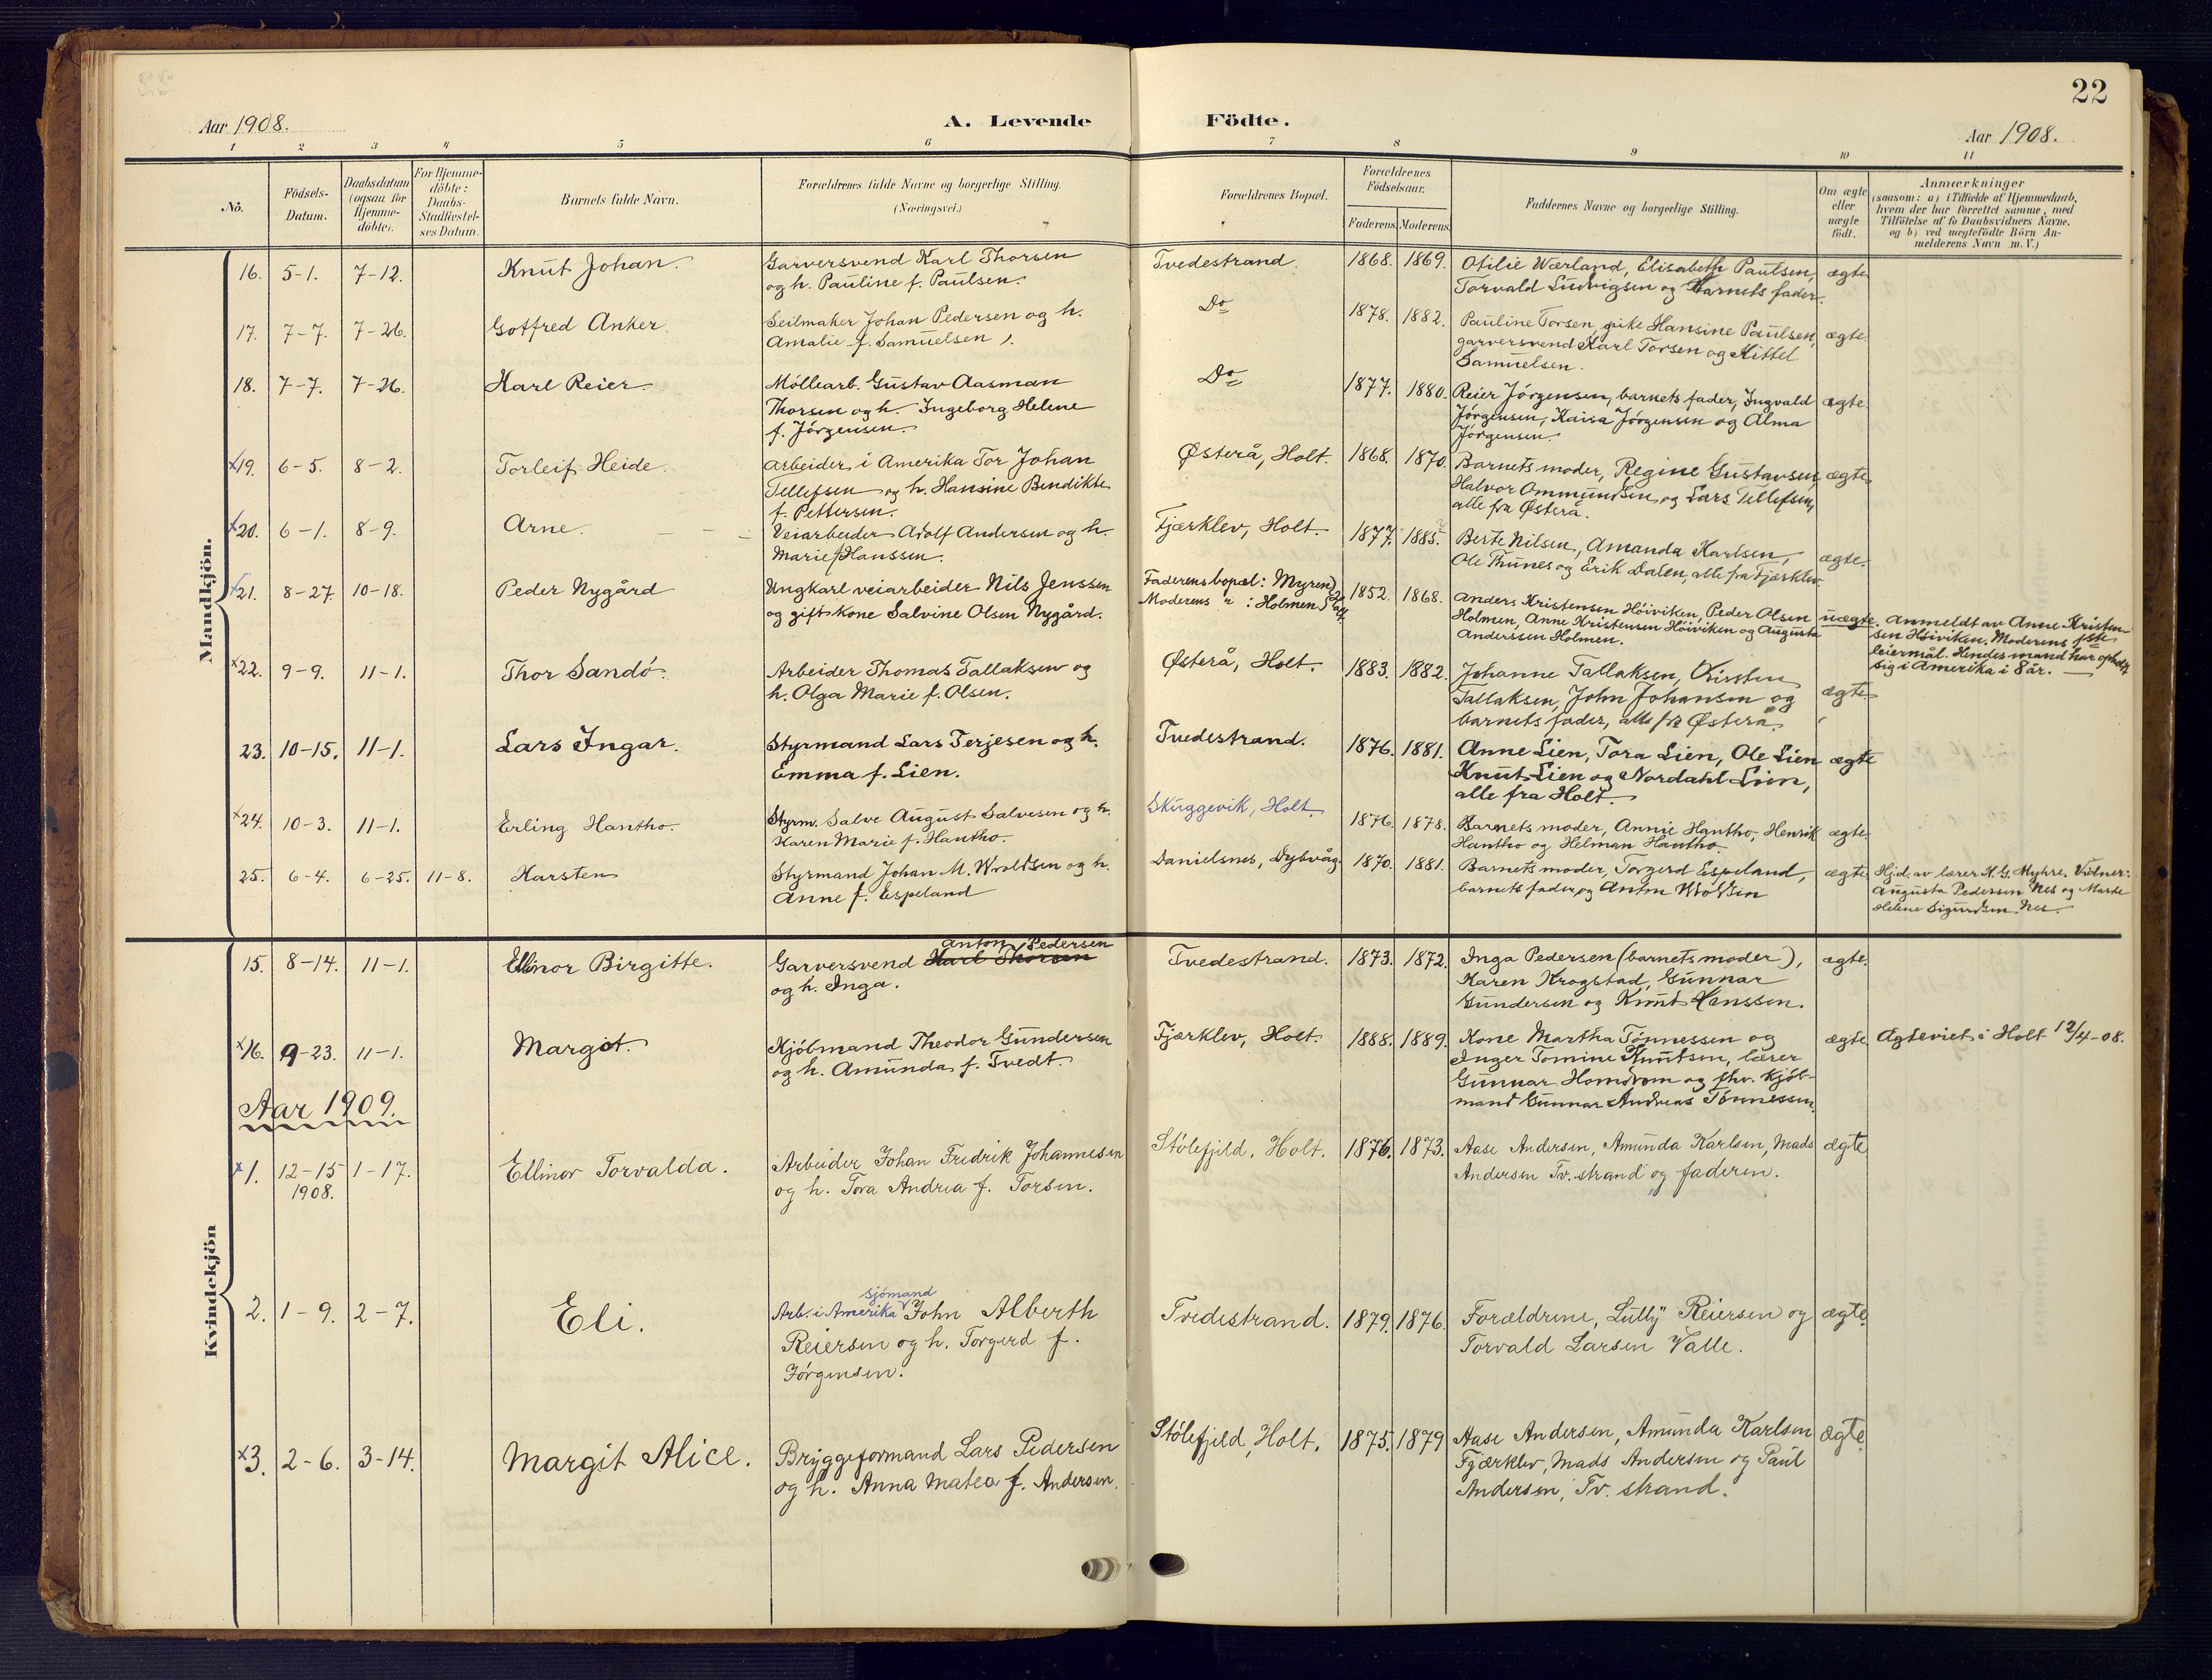 22
Aar 1908.
A. Levende Födte.
Aar 1908.
1 2 3 4 5 6 7 8 9 10 11
No.
Födsels-Datum.
Daabsdatum (ogsaa for Hjemme-döbte).
For Hjemme-döbte: Daabs-Stadfæstel-ses Datum.
Barnets fulde Navn.
Forældrenes fulde Navne og borgerlige Stilling. (Næringsvei.)
Forældrenes Bopæl.
Forældrenes Födselsaar.
Faderens Moderens
Faddernes Navne og borgerlige Stilling.
Om ægte eller uægte födt.
Anmærkninger
(saasom: a) i Tilfælde af Hjemmedaab,
hvem der har forrettet samme, med
Tilföielse af to Daabsvidners Navne.
og b) ved uægtefödte Börn An-
melderens Navn m. V.)
Mandkjön.
16. 5-1. 7-12. Knut Johan. Garversvend Karl Thorsen
og h. Pauline f. Paulsen. Tvedestrand. 1868. 1869. Otilie Wærland, Elisabeth Paulsen,
Torvald Ludvigsen og Barnets fader. ægte
17. 7-7. 7-26. Gotfred Anker. Seilmaker Johan Pedersen og h.
Amalie f. Samuelsen. Do 1878. 1882. Pauline Torsen, pike Hansine Paulsen,
garversvend Karl Torsen og Kittel
Samuelsen. ægte.
18. 7-7. 7-26. Karl Reier. Möllearb. Gustav Aasman
Thorsen og h. Ingeborg Helene
f. Jörgensen. Do 1877. 1880. Reier Jörgensen, barnets fader, Ingvald
Jörgensen, Kaisa Jörgensen og Alma
Jörgensen. ægte.
x19. 6-5. 8-2. Torleif Heide. Arbeider i Amerika Tor Johan
Tellefsen og h. Hansine Bendikte
f. Pettersen. Østerå, Holt. 1868. 1870. Barnets moder, Regine Gustavsen,
Halvor Ommundsen og Lars Tellefsen,
alle fra Østerå. ægte.
x20. 6-1. 8-9. Arne. Veiarbeider Adolf Andersen og h.
Marie f. Hanssen. Fjærklev, Holt. 1877. 1885. Berte Nilsen, Amanda Karlsen,
Ole Thunes og Erik Dalen, alle fra Fjærklev. ægte.
x21. 8-27. 10-18. Peder Nygård Ungkarl veiarbeider Nils Jenssen
og gift kone Salvine Olsen Nygård. Faderens bopæl: Myren
Moderens " : Holmen 1852. 1868. Anders Kristensen Höiviken, Peder Olsen
Holmen, Anne Kristensen Höiviken og Augusta
Anderssen Holmen. uægte. Anmeldt av Anne Kristen-
sen Höiviken. Moderens 1ste
leiermål. Hendes mand har opholdt
sig i Amerika i 8 år.
x22. 9-9. 11-1. Thor Sandö. Arbeider Thomas Tallaksen og
h. Olga Marie f. Olsen. Østerå, Holt. 1883. 1882. Johanne Tallaksen, Kirsten
Tallaksen, John Johansen og
barnets fader, alle fra Østerå. ægte.
23. 10-15. 11-1. Lars Ingar. Styrmand Lars Terjesen og h.
Emma f. Lien. Tvedestrand. 1876. 1881. Anne Lien, Tora Lien, Ole Lien
Knut Lien og Nordahl Lien,
alle fra Holt. ægte
x24. 10-3. 11-1. Erling Hantho. Styrm. Salve August Salvesen og h.
Karen Marie f. Hantho. Skuggevik, Holt. 1876. 1878. Barnets moder, Annie Hantho, Henrik
Hantho og Helman Hantho. ægte.
25. 6-4. 6-25. 11-8. Karsten Styrmand Johan M. Wroldsen og h.
Anne f. Espeland Danielsnes, Dybvåg. 1870. 1881. Barnets moder, Torgerd Espeland,
barnets fader og Anton Wroldsen ægte. Hjd. av lærer K. G. Myhre. Vidner:
Augusta Pedersen Nes og
Helene Sigurdsen Nes.
Kvindekjön
15. 8-14. 11-1. Ellinor Birgitte. Garversvend Karl Thorsen Anton Pedersen
og h. Inga. Tvedestrand. 1873. 1872. Inga Pedersen (barnets moder),
Karen Krogstad, Gunnar
Gundersen og Knut Hanssen. ægte.
x16. 9-23. 11-1. Margit. Kjöbmand Theodor Gundersen
og h. Amunda f. Tvedt. Fjærklev, Holt. 1888. 1889. Kone Martha Tönnessen og
Inger Tomine Knutsen, lærer
Gunnar Homdrom og fhv. kjöb-
mand Gunnar Andreas Tönnessen. ægte. Ægteviet i Holt 12/4-08.
Aar 1909.
x1. 12-15 1908. 1-17. Ellinor Torvalda. Arbeider Johan Fredrik Johannesen
og h. Tora Andrea f. Torsen. Stölefjeld, Holt. 1876. 1873. Aase Andersen, Amunda Karlsen, Mads
Andersen Tv.strand og faderen. ægte
2. 1-9. 2-7. Eli. Arb. i Amerika sjömand John Alberth
Reiersen og h. Torgerd f.
Jörgensen. Tvedestrand. 1879. 1876. Forældrene, Lully Reiersen og
Torvald Larsen Valle. ægte.
x3. 2-6. 3-14. Margit Alice. Bryggeformand Lars Pedersen
og h. Anna Matea f. Andersen. Stölefjeld, Holt. 1875. 1879 Aase Andersen, Amunda Karlsen
Fjærklev, Mads Andersen og Paul
Andersen, Tv.strand. ægte.